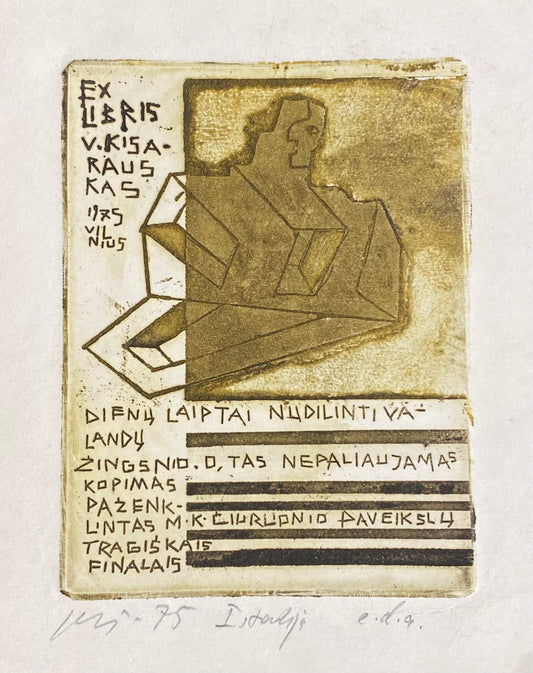 EX
LIBRIS
V. KISA-
RAUS
KAS
1975
VIL
NIUS
DIENŲ LAIPTAI NUDILINTI VA-
LANDŲ
ŽINGSNIO. O, TAS NEPALIAUJAMAS
KOPIMAS
PAŽENK-
LINTAS M.K. ČIURLIONIO PAVEIKSLŲ
TRAGIŠKAIS
FINALAIS
-75 e.d.a.